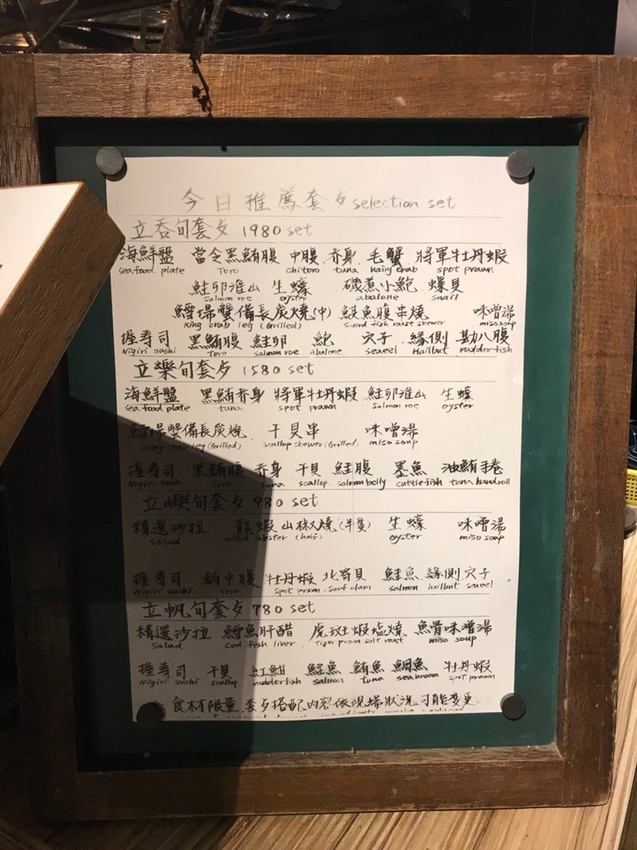 今日推薦套歺 selection set
立吞旬套歺 1980 set
海鮮盤 當令黑鮪腹 中腹 赤身 毛蟹 將軍牡丹蝦
seafood plate Toro chitoro tuna hairy crab spot prawn
鮭卵淮山 生蠔 磯煮小鮑 螺貝
salmon roe oyster abalone snail
鱈場蟹備長炭燒(中) 鰻魚腹串燒 味噌湯
king crab leg (Grilled) sword fish roast skewer miso soup
握壽司 黑鮪腹 鮭卵 鮑 穴子 緣側 勘八腹
Nigiri sushi Toro salmon roe abalone seaeel Hailbat rudderfish
立樂旬套歺 1580 set
海鮮盤 黑鮪赤身 將軍牡丹蝦 鮭卵淮山 生蠔
seafood plate tuna spot prawn salmon roe oyster
鱈場蟹備長炭燒 干貝串 味噌湯
king crab leg (Grilled) scallop skewer (Grilled) miso soup
握壽司 黑鮪腹 赤身 干貝 鮭腹 墨魚 油鮪手卷
Nigiri sushi Toro Tuna scallop salmon belly cuttlefish tuna handroll
旬套歺 980 set
精選沙拉 龍蝦山椒燒(半隻) 生蠔 味噌湯
salad lobster (half) oyster miso soup
握壽司 鮪中腹 牡丹蝦 北寄貝 鮭魚 緣側 穴子
Nigiri sushi Toro spot prawn surf clam salmon hailbat seaeel
立帆旬套歺 780 set
精選沙拉 鱈魚肝醋 虎斑蝦塩燒 魚骨味噌湯
salad cod fish liver tiger prawn salt roast miso soup
握壽司 干貝 紅魽 鮭魚 鮪魚 鯛魚 牡丹蝦
Nigiri sushi scallop rudderfish salmon tuna seabream spot prawn
食材限量 套歺搭配內容依現場狀況可能變更